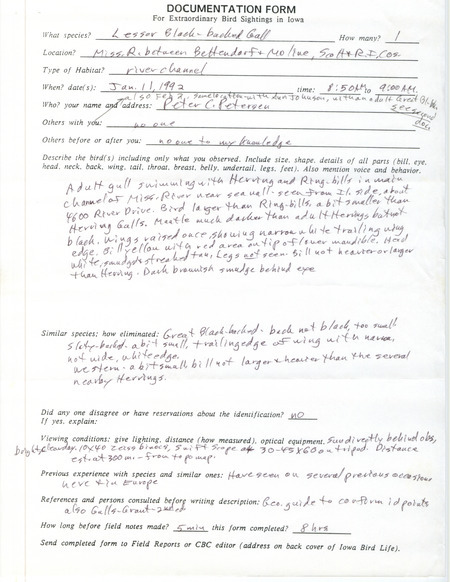 DOCUMENTATION FORM
For Extraordinary Bird Sightings in Iowa
What species? Lesser Black-backed Gull How many? 1
Location? Miss. R. between Bettendorf + Moline, Scott + R.I. Cos
Type of Habitat? river channel
When? date(s): Jan. 11, 1992 time: 8:50AM to 9:00AM
also Feb 2, same location with Jon Johnson, with an adult Great Bl.-b.
see second doc
Who? your name and address: Peter C. Petersen
Others with you: no one
Others before or after you: no one to my knowledge
Describe the bird(s) including only what you observed. Include size, shape, details of all parts (bill, eye,
head, neck, back, wing, tail, throat, breast, belly, undertail, legs, feet). Also mention voice and behavior.
Adult gull swimming with Herring and Ring-bills in main
channel of Miss. River near sea wall - seen from Il. side, about
4600 River Drive. Bird larger than Ring-bills, a bit smaller than
Herring Gulls. Mantle much darker than adult Herrings but not
black. Wings raised once, showing narrow white trailing wing
edge. Bill yellow with red area on tip of lower mandible. Head
white, smudged streaked tan, Legs not seen. Bill not heavier or larger
than Herring. Dark brownish smudge behind eye
Similar species; how eliminated: Great Black-backed - back not black, too small
Slaty-backed - a bit small, trailing edge of wing with narrow,
not wide, white edge.
western - a bit small bill not larger + heavier than the several
nearby Herrings.
Did any one disagree or have reservations about the identification? no
If yes, explain:
Viewing conditions: give lighting, distance (how measured), optical equipment, Sun directly behind obs,
bright, clear day. 10x40 Zeiss binocs, Swift scope at 30-45X60 on tripod. Distance
est. at 300m. - from topo map.
Previous experience with species and similar ones: Have seen on several previous occasions
here + in Europe
References and persons consulted before writing description: Geo. guide to confirm id points
also Gulls - Grant - 2nd ed
How long before field notes made? 5 min this form completed? 8 hrs
Send completed form to Field Reports or CBC editor (address on back cover of Iowa Bird Life).